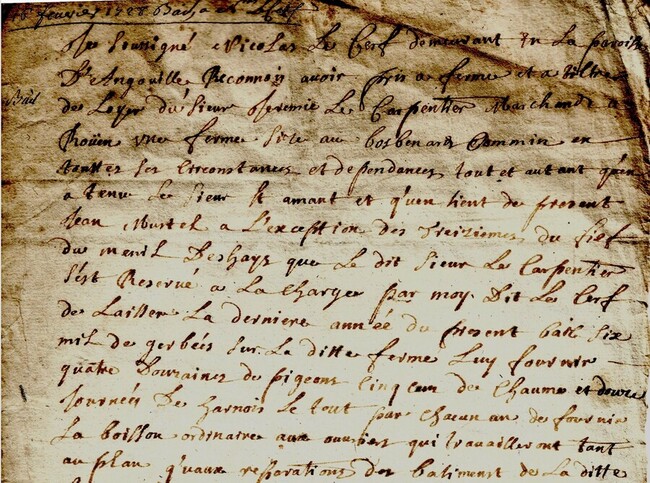 fevrier 1788 Bail a
Je soussigné Nicolas Le Cerf demeurant En La paroisse
D'Angouille Reconnois avoir pris a ferme et a tiltre
Bail
de Loyer du Sieur Jeremie Le Carpentier Marchand a
Roüen vne ferme size au bosbenard Commin en
touttes ses Circonstances et dependances tout et autant qu'en
a tenu Le Sieur St amant et qu'en tient de present
Jean Martel a L'exception des Treiziemes du fief
du menil Deshays que Le dit Sieur Le Carpentier
s'est Reservé a La Charge par moy Dit Le Cerf
de Laisser La derniere année du present bail Six
mil de gerbées sur La ditte ferme Luy fournir
quatre Douzaines de pigeons Cinq de Chaume et douze
Journées De harnois Le tout par Chacun an de fournir
La boisson ordinaire aux ouvriers qui travailleront tant
au plan qu'aux repparations des batiments de La ditte